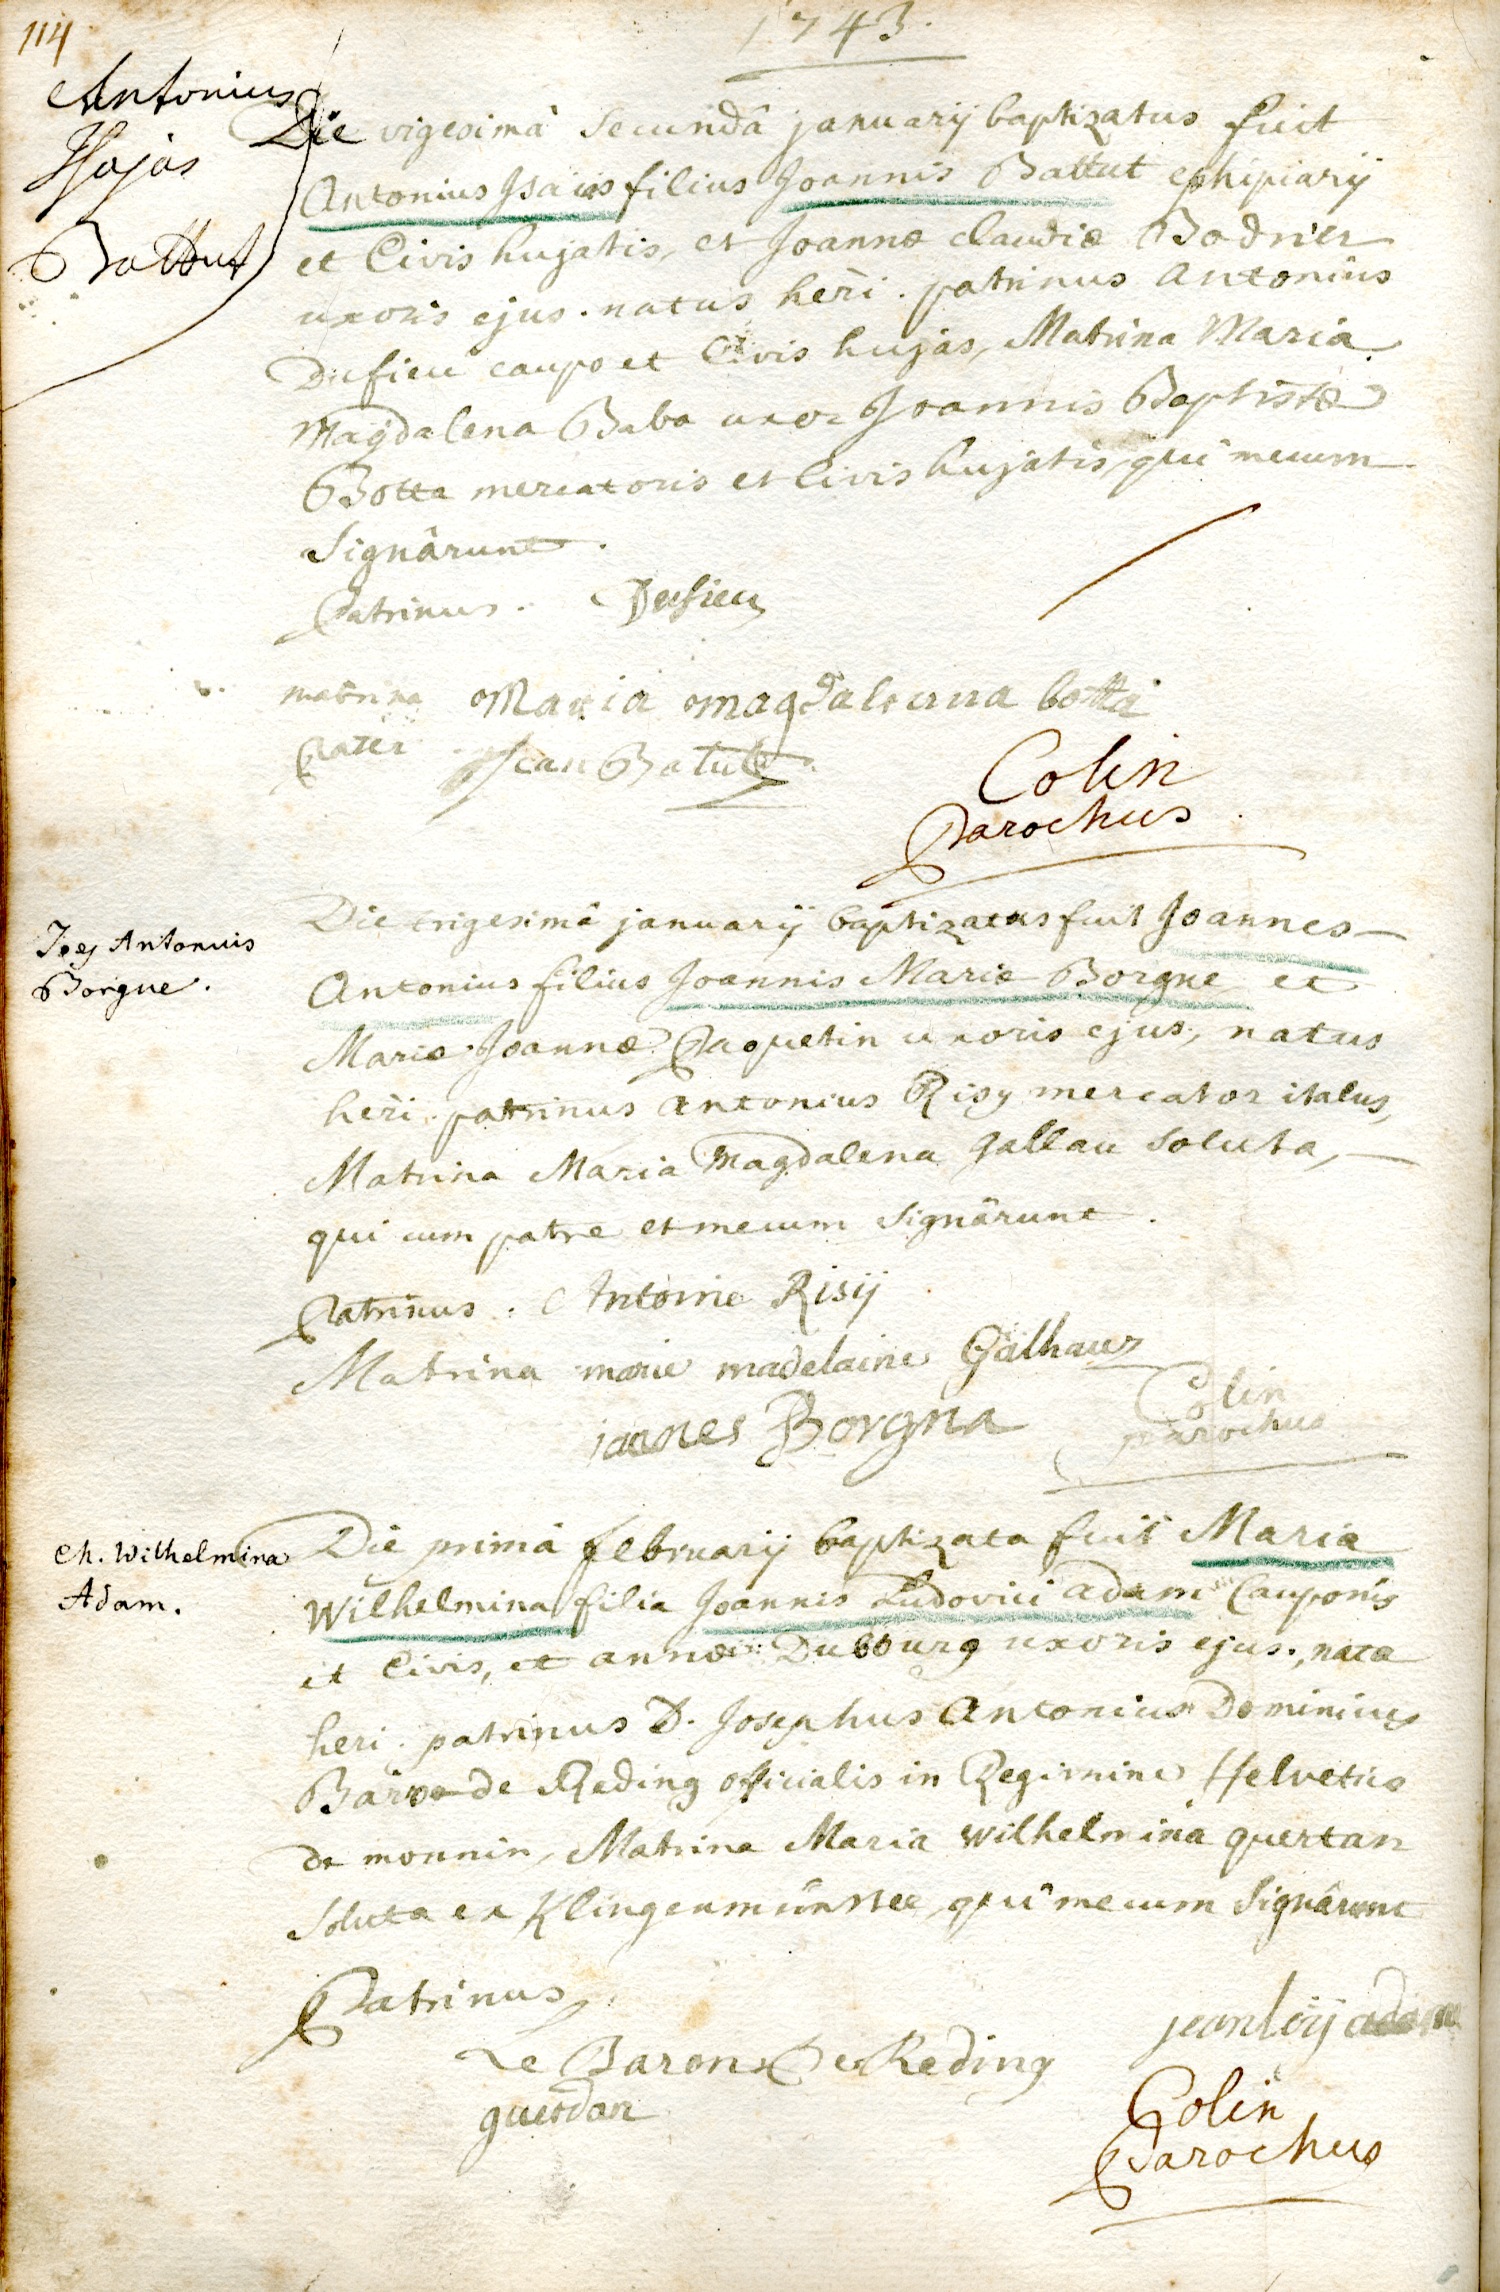 114
1743.
Antonius
Isajas
Battut
Die vigesimâ secundâ januarij baptizatus fuit
Antonius Isaias filius Joannis Battut ephipiarij
et Civis hujatis, et Joannæ Claudiæ Bodrier
uxoris ejus. natus heri. patrinus Antonius
Dufieu caupo et Civis hujas, Matrina Maria
Magdalena Baba uxor Joannis Baptistæ
Botta mercatoris et Civis hujatis, qui mecum
signârunt.
Patrinus. Dufieu
matrina Maria Magdalena botta
Pater Jean Batut
Colin
Parochus
Joes Antonius
Borgne.
Die trigesimâ januarij baptizatus fuit Joannes
Antonius filius Joannis Mariæ Borgne et
Mariæ Joannæ Paquetin uxoris ejus, natus
heri. patrinus Antonius Risy mercator italus,
Matrina Maria Magdalena Gallau soluta,
qui cum patre et mecum signârunt.
Patrinus. Antoine Risij
Matrina marie madelaine Galhaux
ioannes Borgna
Colin
parochus
M. Wilhelmina
Adam.
Die primâ februarij baptizata fuit Maria
Wilhelmina filia Joannis Ludovici Adam Cauponis
et Civis, et annæ Dubburg uxoris ejus., nata
heri. patrinus D. Josephus Antonius Dominicus
Baro de Reding officialis in Regimine Helvetico
de monnin, Matrina Maria Wilhelmina quertan
soluta ex Klingenmünster, qui mecum signârunt
Patrinus
Le Baron De Reding
jean loÿ adam
guerdan
Colin
Parochus